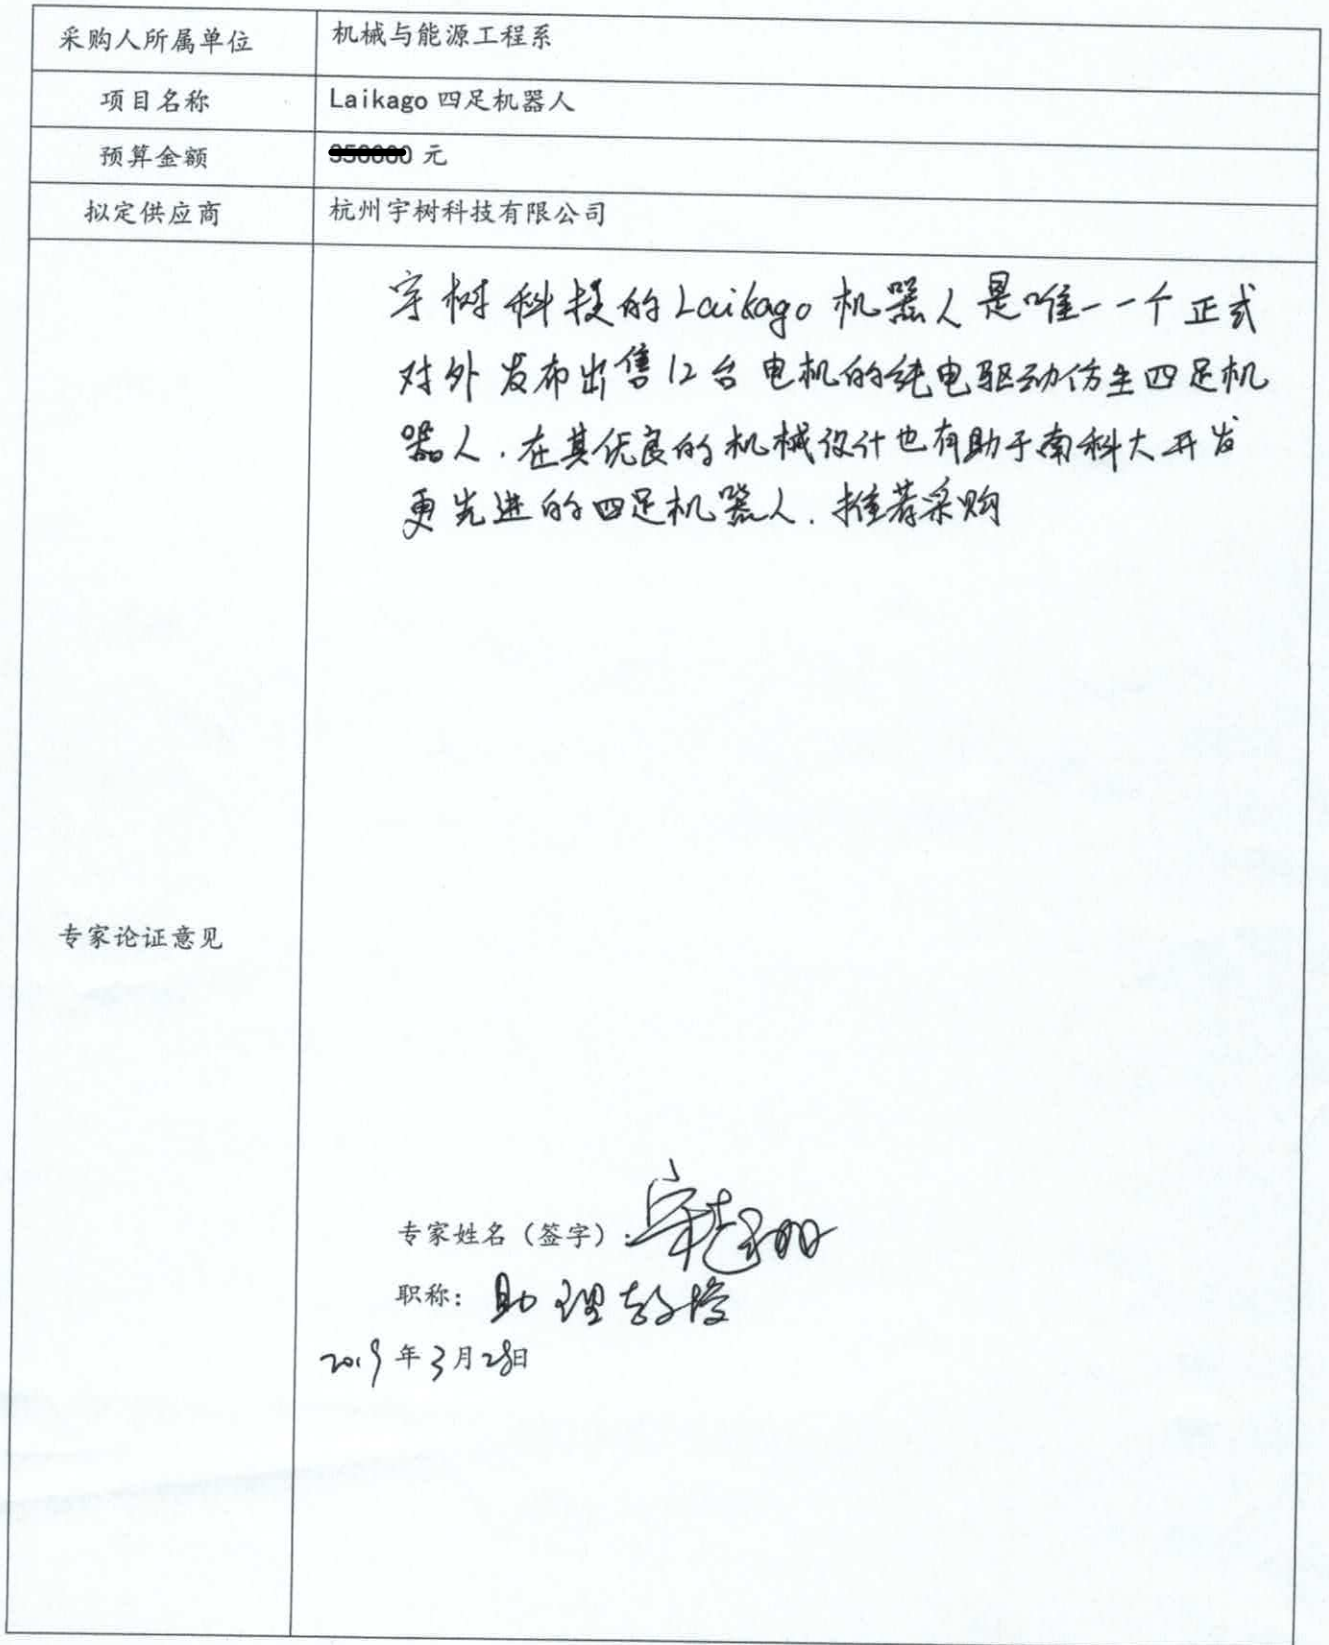 采购人所属单位 机械与能源工程系
项目名称 Laikago 四足机器人
预算金额 元
拟定供应商 杭州宇树科技有限公司
宇树科技的Laikago机器人是唯一一个正式
对外发布出售12台电机的纯电驱动仿生四足机
器人.在其优良的机械设计也有助于南科大开发
更先进的四足机器人.推荐采购
专家论证意见
专家姓名（签字）：
职称：助理教授
2019年3月28日